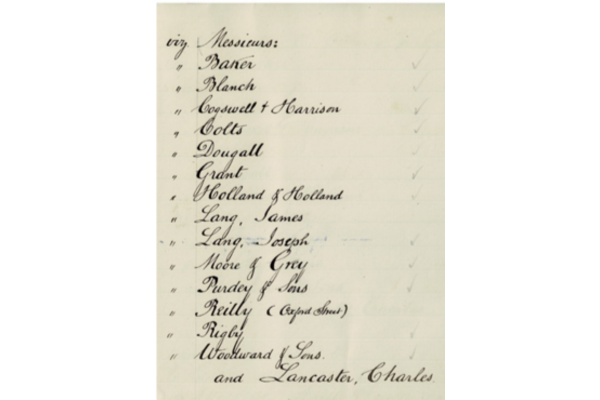 viz Messieurs:
" Baker
" Blanch
" Cogswell & Harrison
" Colts
" Dougall
" Grant
" Holland & Holland
" Lang, James
" Lang, Joseph
" Moore & Grey
" Purdey & Sons
" Reilly (Oxford Street)
" Rigby
" Woodward & Sons.
and Lancaster, Charles.